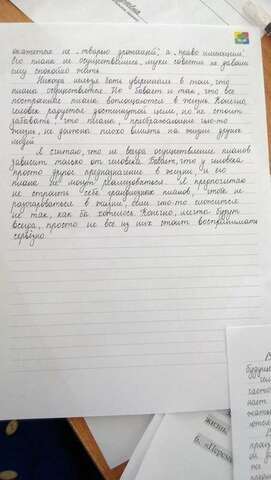 окажется не „тварью дрожащей, а „право имеющим".
Его планы не осуществились, муки совести не давали
ему спокойно жить.
Никогда нельзя быть уверенным в том, что
планы осуществятся. Но бывает и так, что все
построенные планы воплощаются в жизнь. Конечно,
человек радуется достигнутой цели, но не стоит
забывать, что планы, преображающие чью-то
жизнь, не должны плохо влиять на жизнь других
людей.
Я считаю, что не всегда осуществление планов
зависит только от человека. Бывает, что у человека
просто другое предназначение в жизни, и его
планы не могут реализоваться. Я предпочитаю
не строить себе грандиозных планов, чтобы не
разочароваться в жизни, если что-то сложится
не так, как бы хотелось. Конечно, мечты будут
всегда, просто не все из них стоит воспринимать
серьёзно.
жизнь
6.
будущее